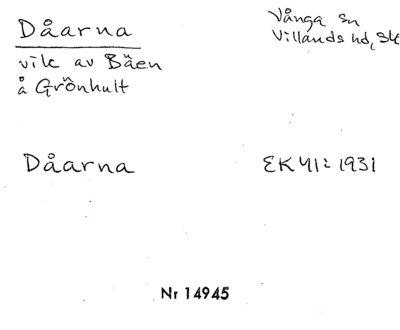 Dåarna
vik av Bäen
å Grönhult
Vånga sn
Villands hd, Sk
Dåarna
EK 41: 1931
Nr 14945